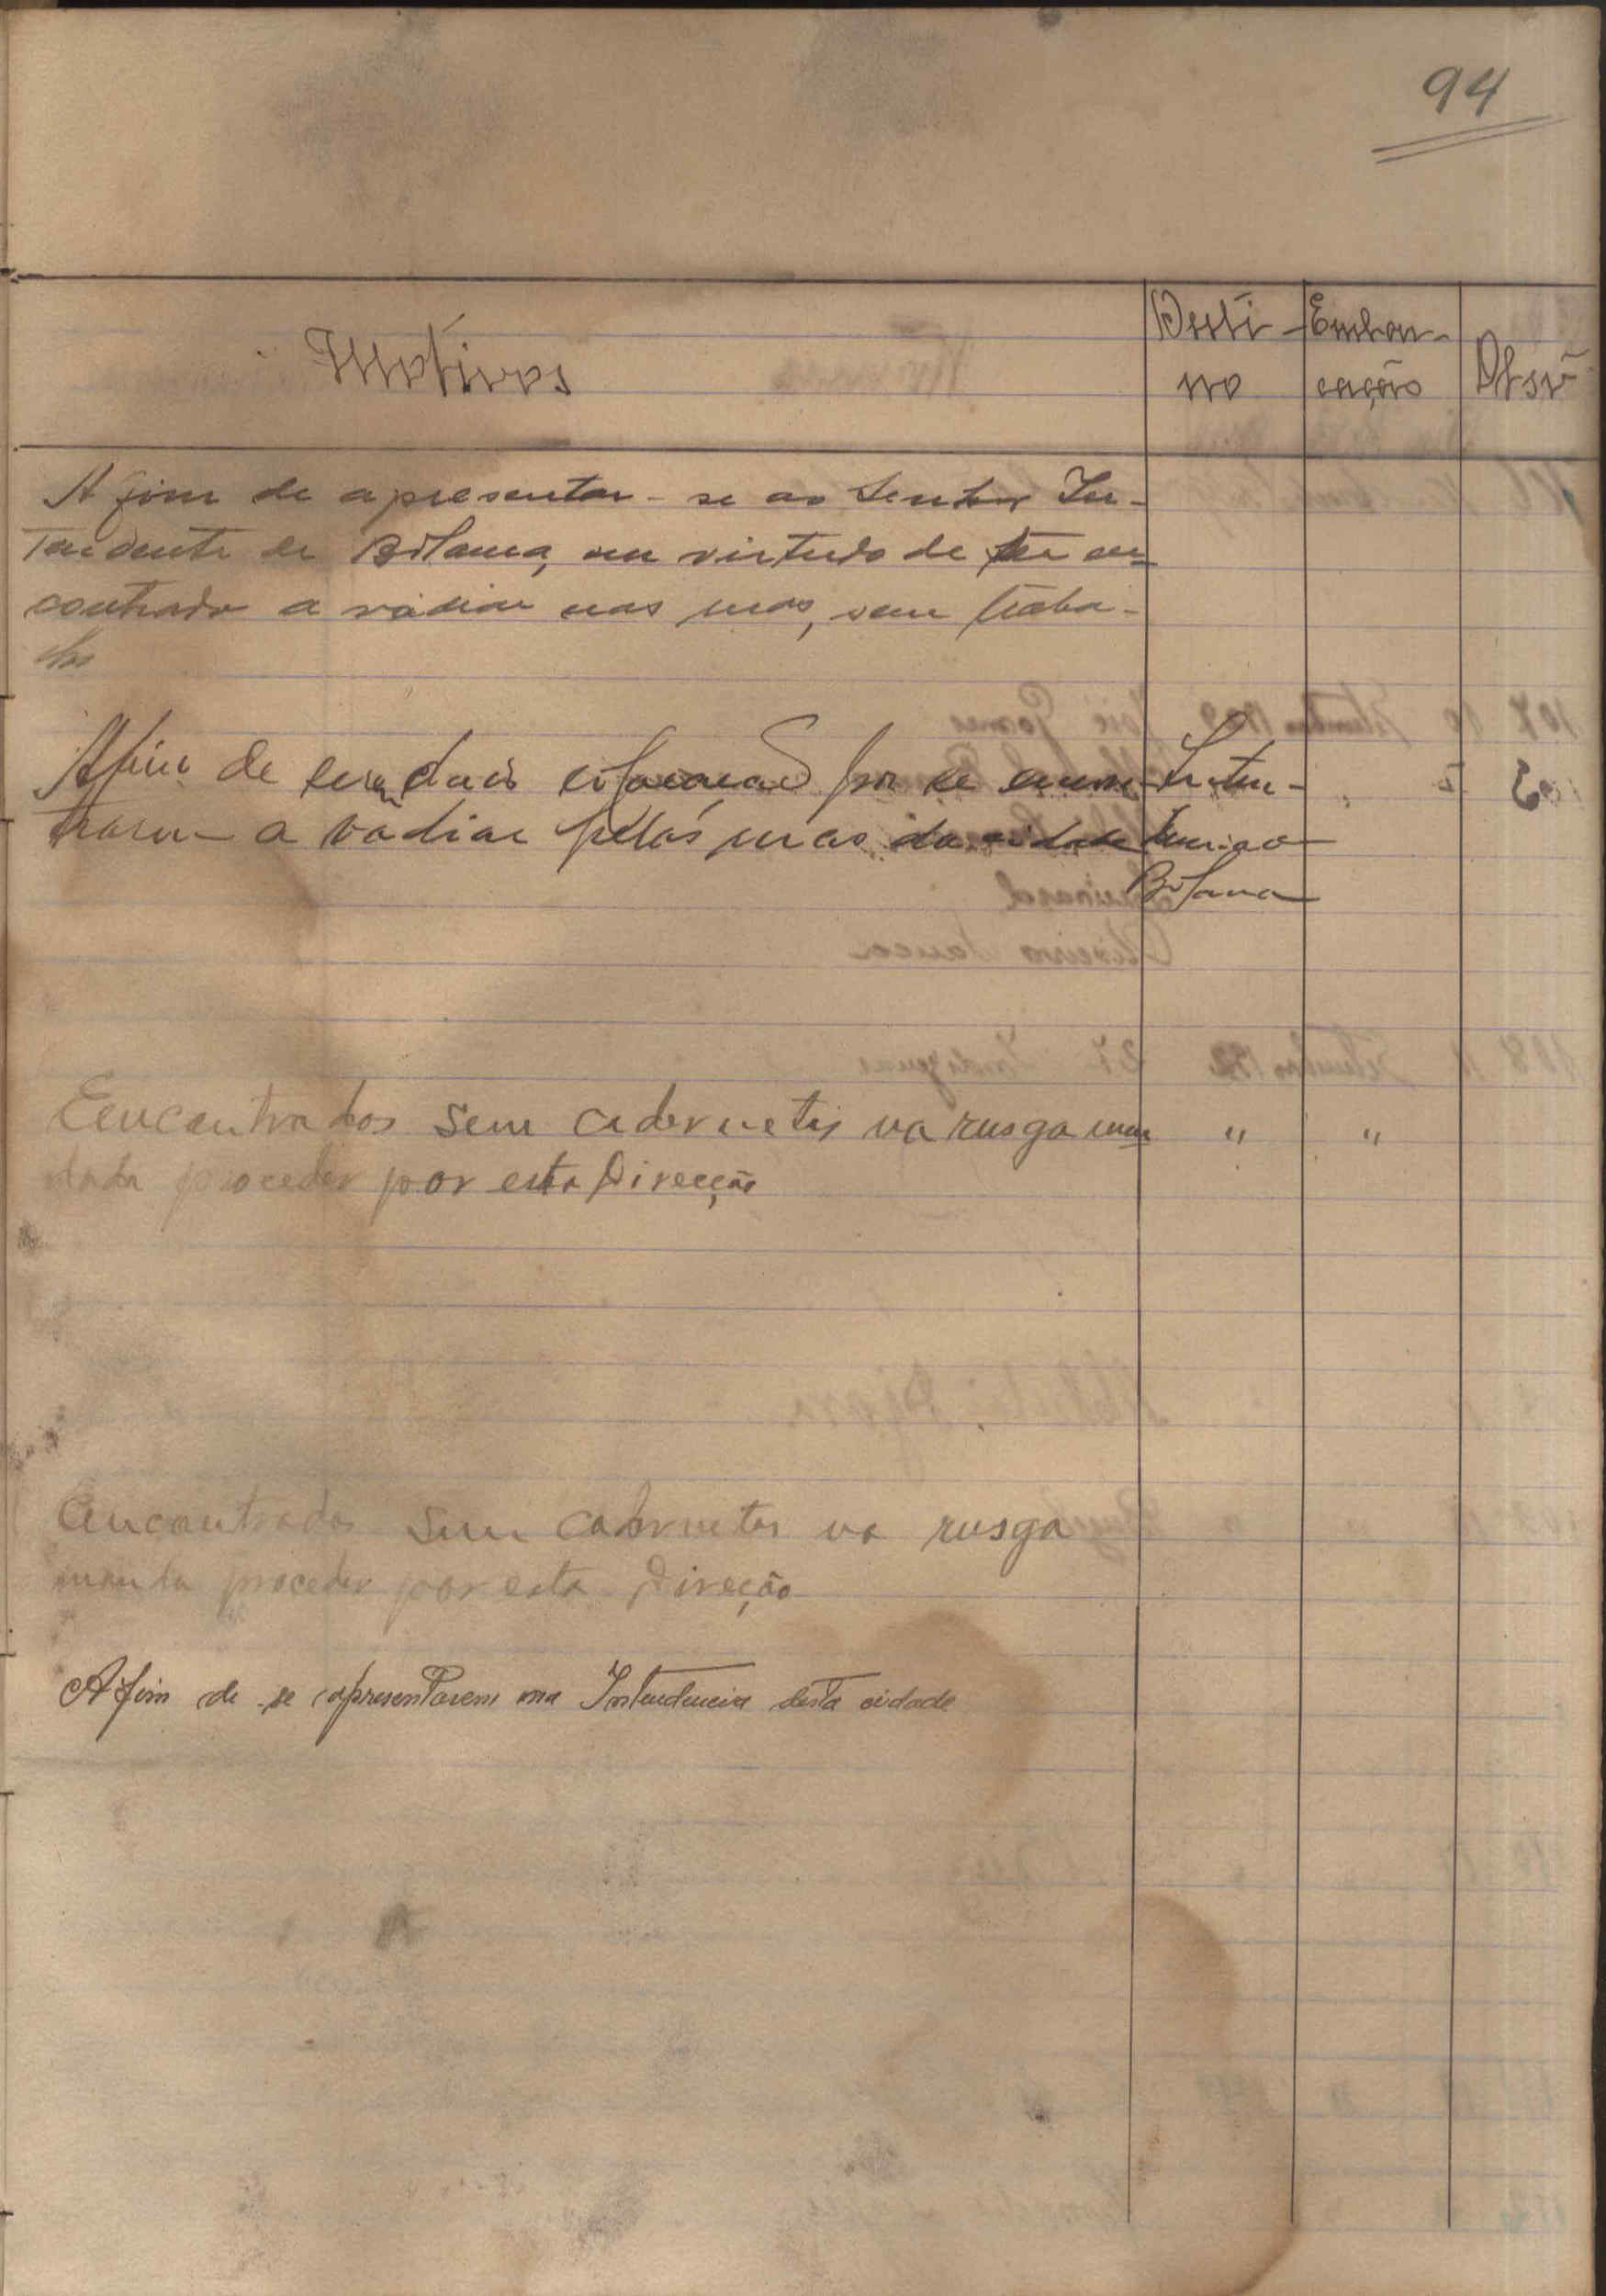 94
Motivos
Desti-
no
Embar-
cação
Obsv
A fim de apresentar-se ao Senhor In-
tendente de Bolama, em virtude de ser en-
contrado a vadiar nas ruas, sem traba-
lho
Afim de por se encon-
traram a vadiar pelas ruas da cidade
Inten-
Bolama
Eencontrados sem cadernetas na rusga man
dada proceder por esta Direcção
"
"
Encontrados sem cadernetas na rusga
manda proceder por esta Direção
A fim de se apresentarem na Intendencia desta cidade